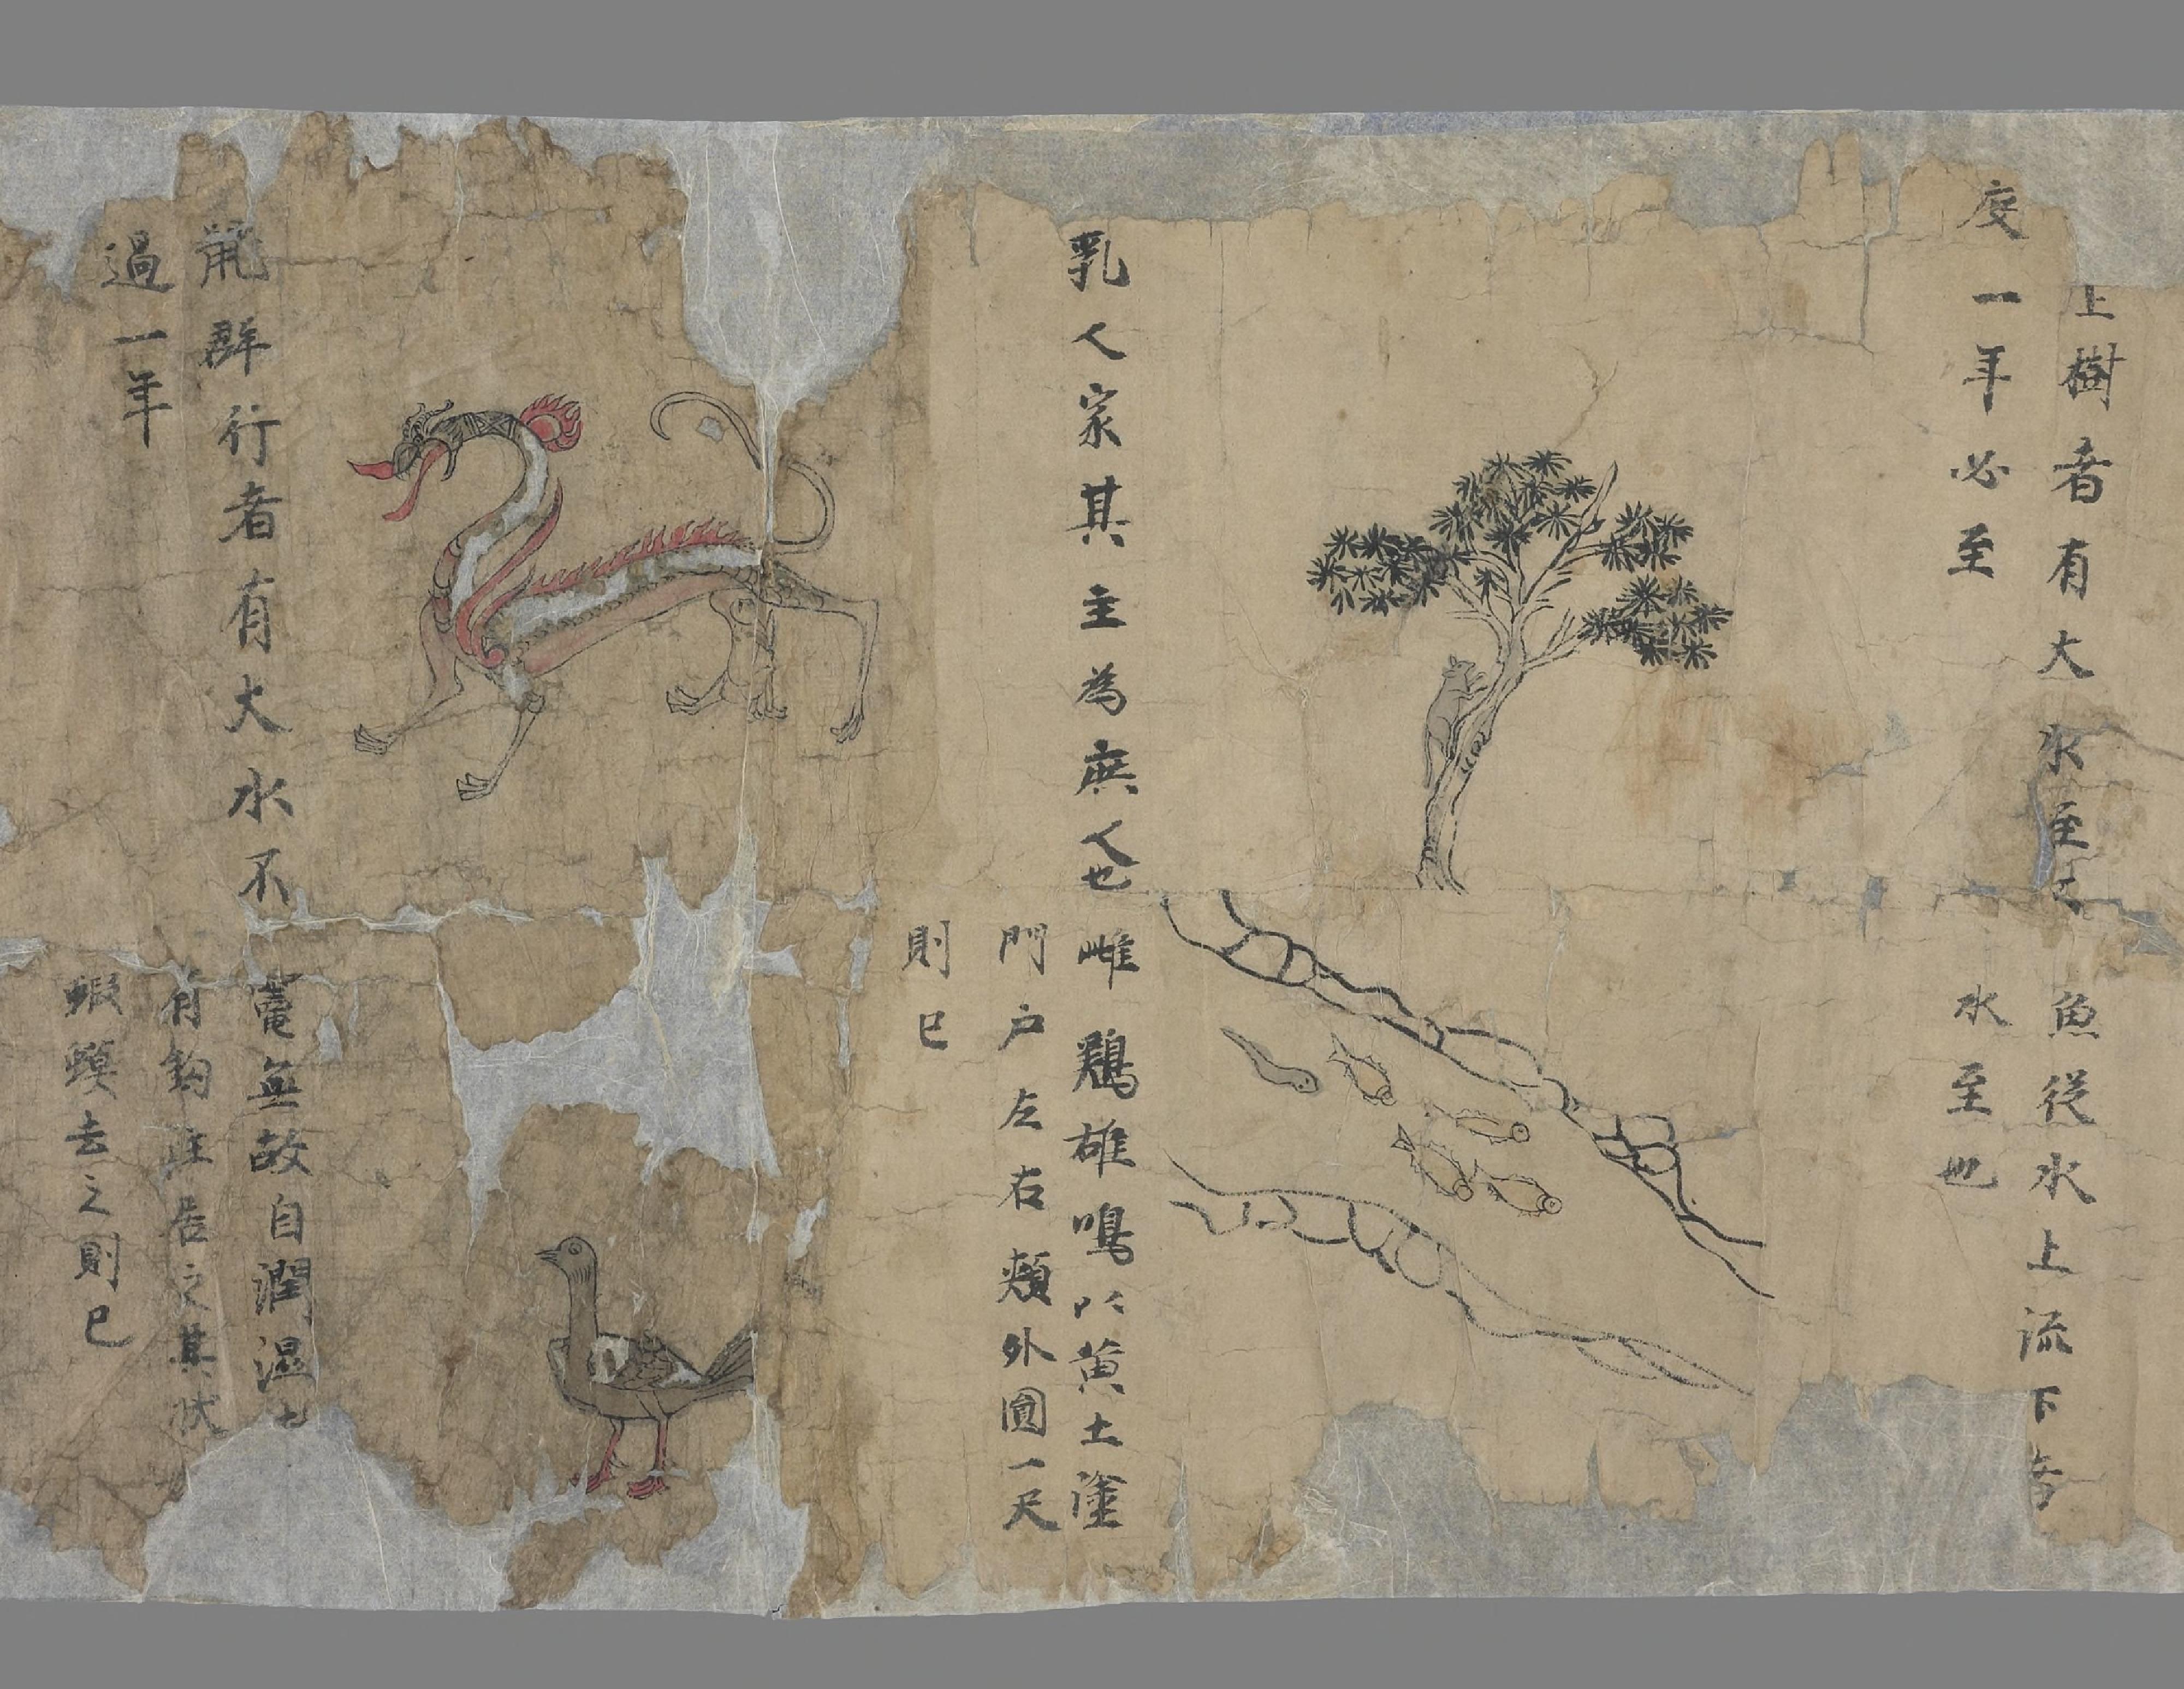 上樹者有大水至
度一年必至
乳人家其主為庶人也
鼠群行者有大水不
過一年
魚從水上流下者
水至也
雌鷄雄鳴以黄土塗
門戶左右頰外圓一尺
則已
竈無故自潤濕
有鈎注居之其狀
蝦蟆去之則已